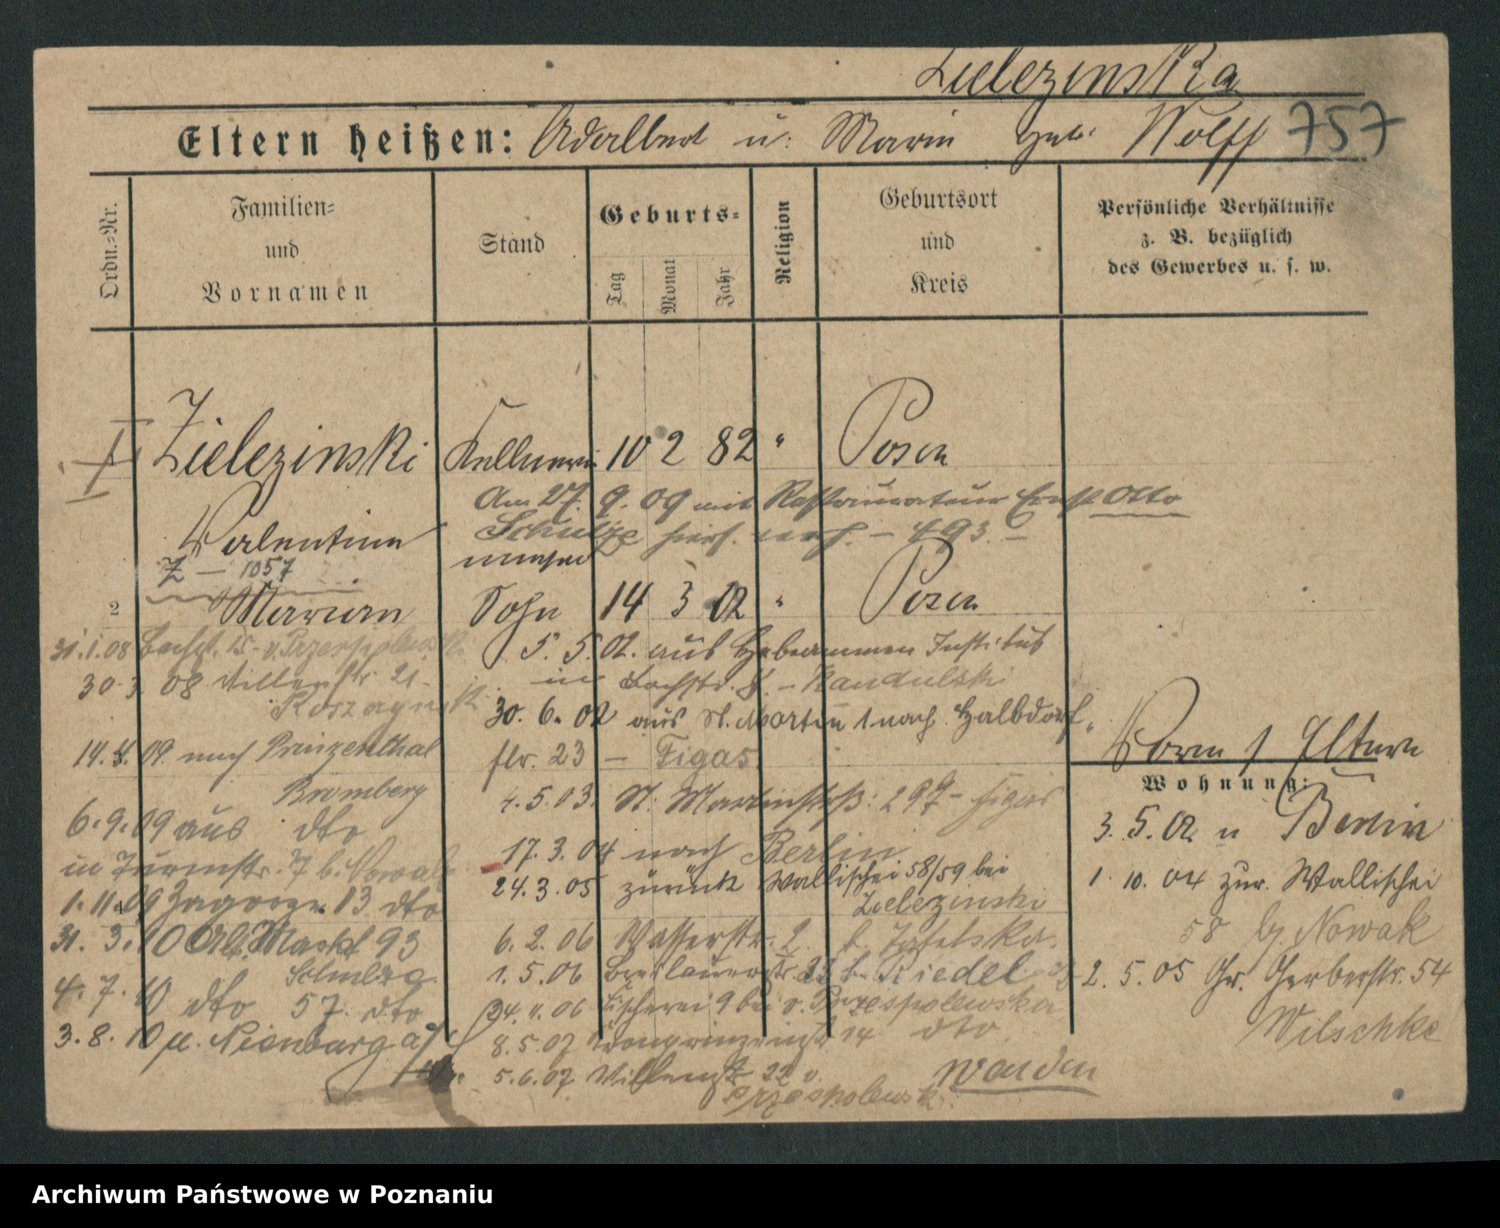 Zielezinska
Eltern heißen: Adalbert u. Marie geb. Wolff 757
Ordn.-Nr.
Familien-
und
Vornamen
Stand
Geburts-
Tag
Monat
Jahr
Religion
Geburtsort
und
Kreis
Persönliche Verhältnisse
z. B. bezüglich
des Gewerbes u. s. w.
I Zielezinski Kellnerin 10 2 82 " Posen
Am 27. 9. 09 mit Restaurateur Ernst Otto
Schulze hier verh. – 493. –
Valentine
Z – 1057
2 Marian Sohn 14 3 02 " Posen
31.1.08 Bachst. 15 - v. Przespolewska
30. 3. 08 Victoriastr. 21 -
14. 4. 09 nach Prinzenthal
Bromberg
6. 9. 09 aus dto
in Turmstr. 7 b. Nowak
1. 11. 09 Zagorze 13 dto
31. 3. 10 Alt. Markt 93
Schulze
4. 7. 10 dto 57. dto
3. 8. 10 n. Nienburg a/
5. 5. 02. aus Hebammen Institut
in Bachstr. – Kandulski
30. 6. 02 aus St. Martin nach Halbdorf-
str. 23 – Figas
4. 5. 03. St. Martinstr. 29 – Figas
17. 3. 04 nach Berlin
24. 3. 05 zurück Wallischei 58/59 bei
Zielezinski
6. 2. 06 Wasserstr. 2.
1. 5. 06 Breslauerstr. b. Riedel
24. 06 Fischerei 9 bei v. Przespolewska
8. 5. 07 Kronprinzenstr. 14 dto
5. 6. 07 22 v.
Przespolewsk
Vorm / Eltern
Wohnung:
3. 5. 02 n Berlin
1. 10. 04 zur. Wallischei
58 bei Nowak
2. 5. 05 Gr. Gerberstr. 54
Wilschke